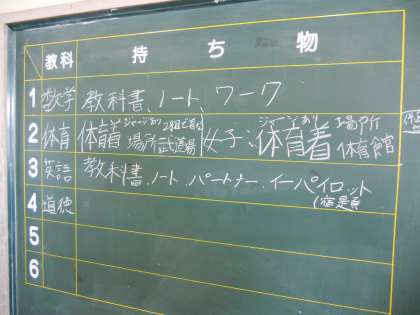 教科 持ち物
1 数学 教科書、ノート、ワーク
2 体育 体育着 ジャージあり 場所武道場 女子:体育着 ジャージあり 場所 体育館
3 英語 教科書、ノート、パートナー、イーパイロット
(宿題
4 道徳
5
6